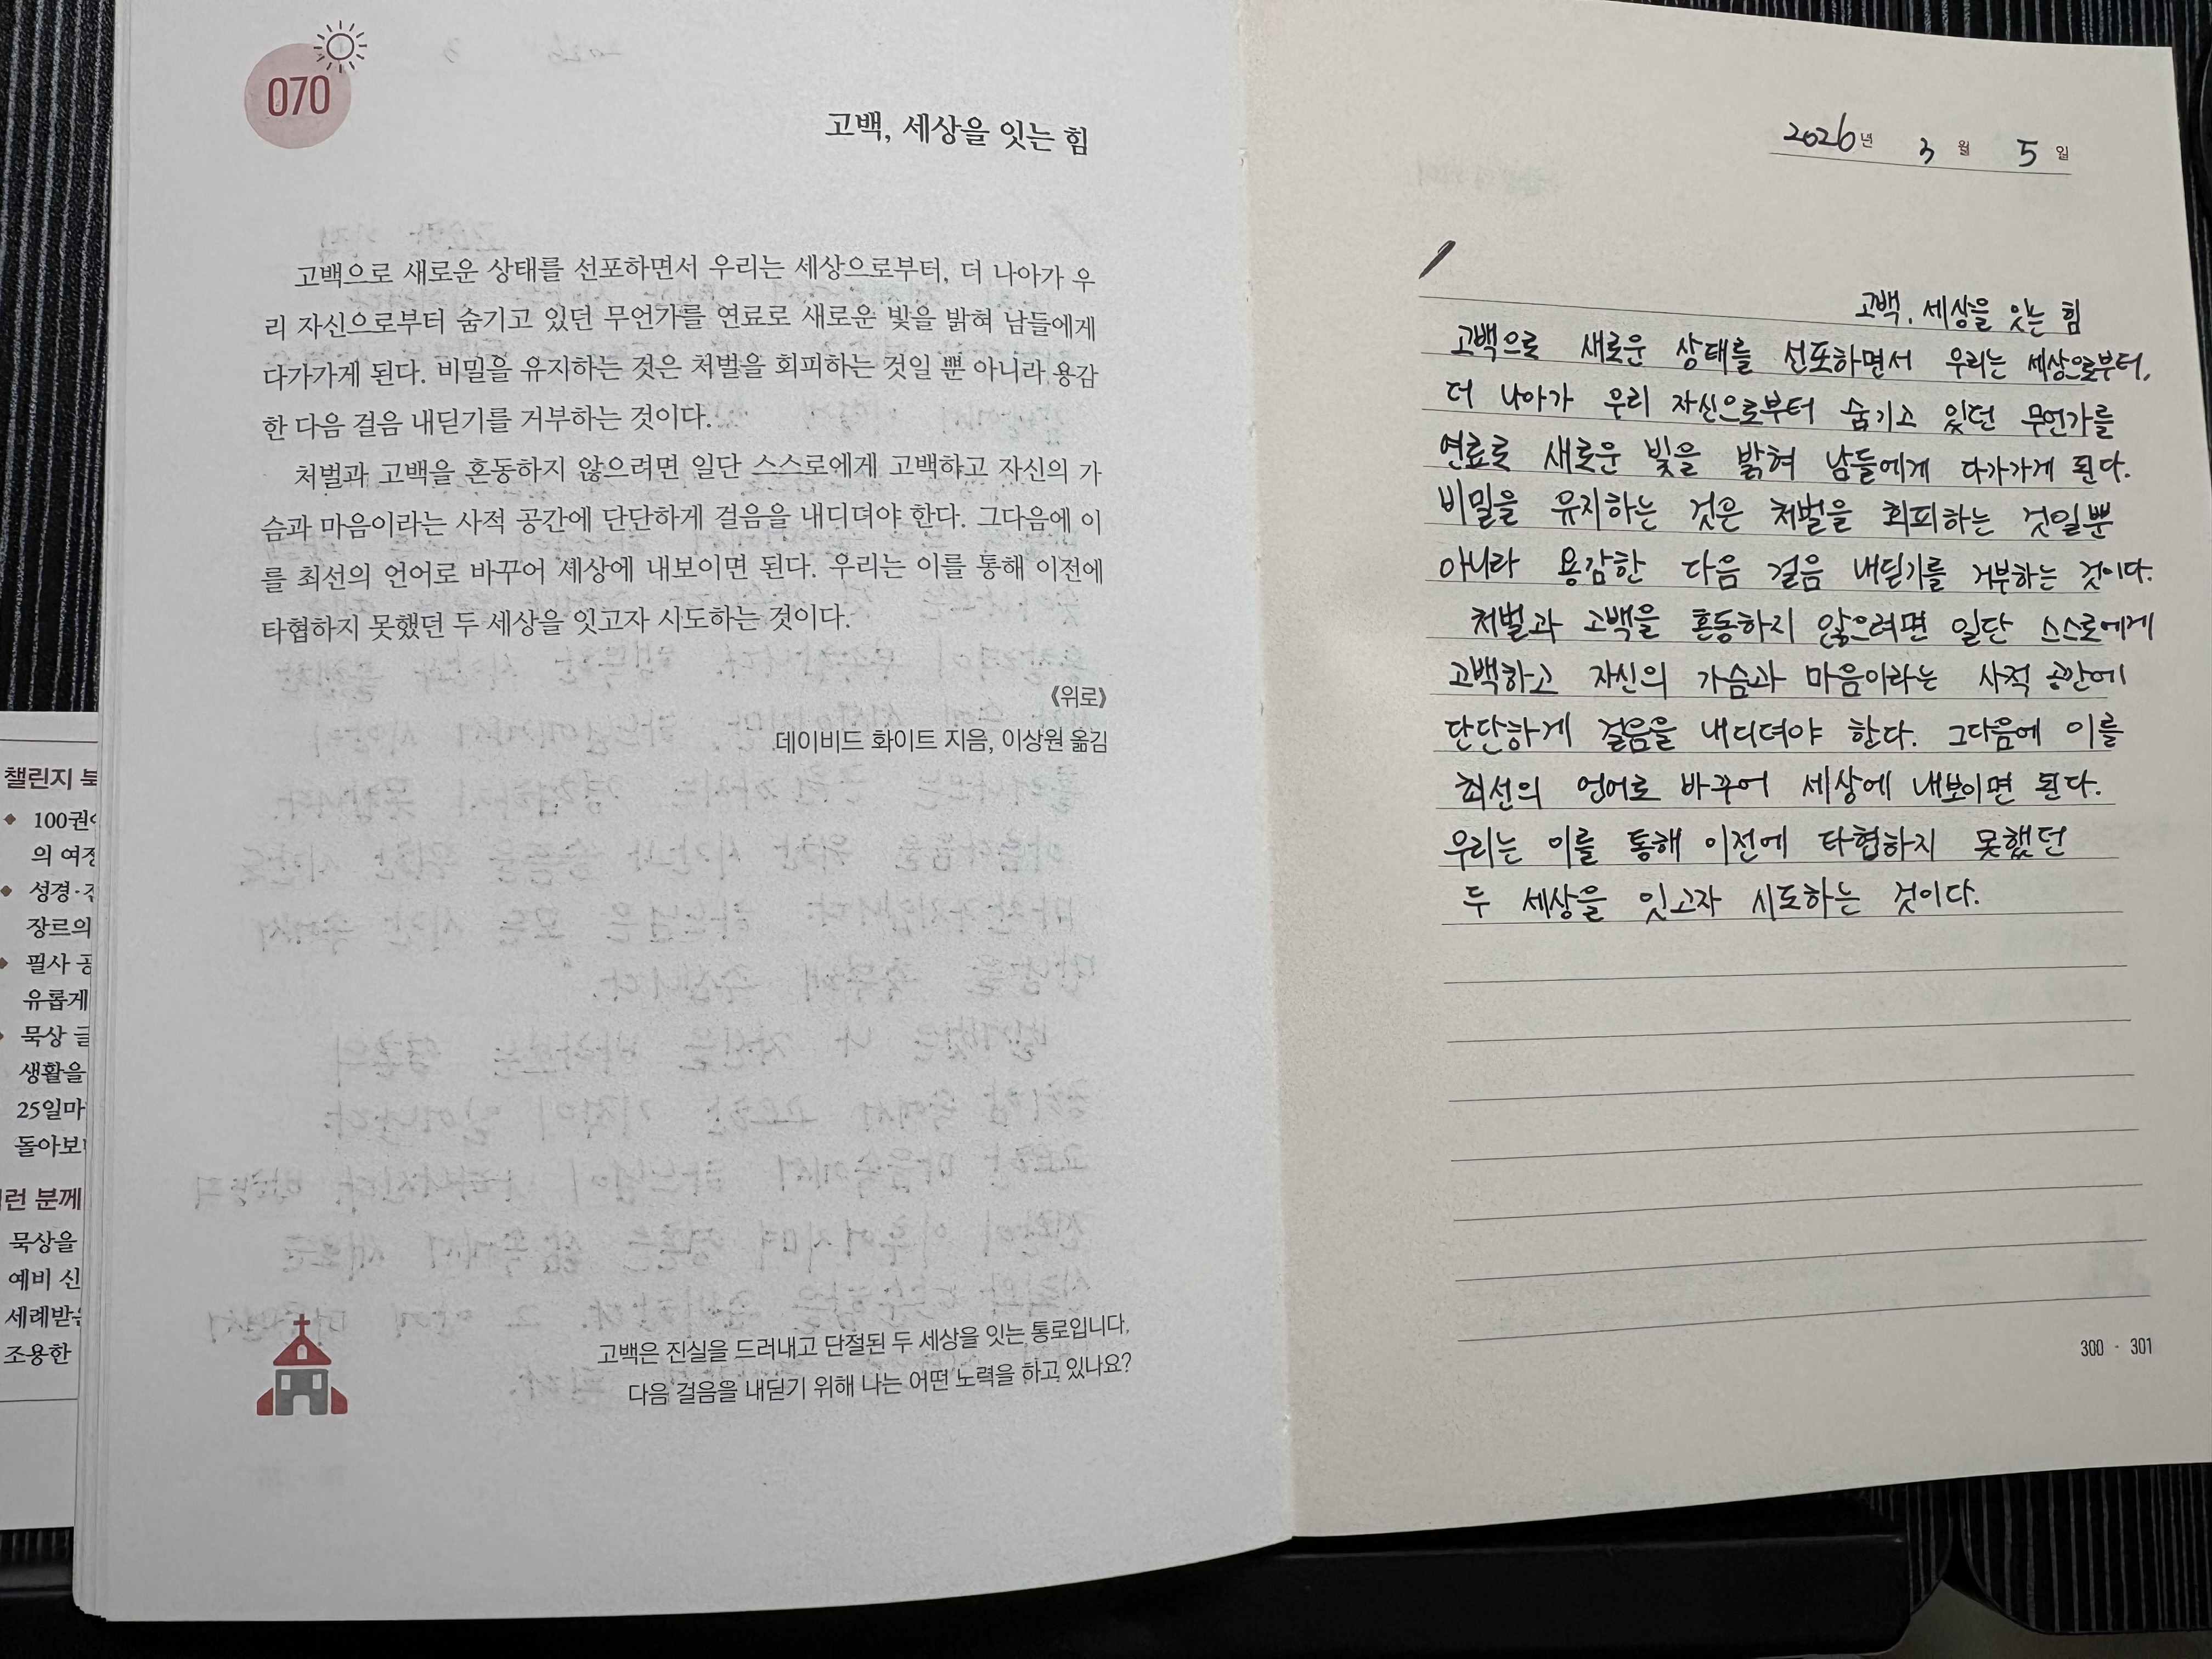 070
고백, 세상을 잇는 힘
고백으로 새로운 상태를 선포하면서 우리는 세상으로부터, 더 나아가 우
리 자신으로부터 숨기고 있던 무언가를 연료로 새로운 빛을 밝혀 남들에게
다가가게 된다. 비밀을 유지하는 것은 처벌을 회피하는 것일 뿐 아니라 용감
한 다음 걸음 내딛기를 거부하는 것이다.
처벌과 고백을 혼동하지 않으려면 일단 스스로에게 고백하고 자신의 가
슴과 마음이라는 사적 공간에 단단하게 걸음을 내디뎌야 한다. 그다음에 이
를 최선의 언어로 바꾸어 세상에 내보이면 된다. 우리는 이를 통해 이전에
타협하지 못했던 두 세상을 잇고자 시도하는 것이다.
《위로》
데이비드 화이트 지음, 이상원 옮김
고백은 진실을 드러내고 단절된 두 세상을 잇는 통로입니다.
다음 걸음을 내딛기 위해 나는 어떤 노력을 하고 있나요?
챌린지 북
100권
의 여정
성경·
장르의
필사 공
유롭게
묵상 글
생활을
25일마
돌아보
런 분께
묵상을
예비 신
세례받는
조용한
2026년 3월 5일
고백, 세상을 잇는 힘
고백으로 새로운 상태를 선포하면서 우리는 세상으로부터,
더 나아가 우리 자신으로부터 숨기고 있던 무언가를
연료로 새로운 빛을 밝혀 남들에게 다가가게 된다.
비밀을 유지하는 것은 처벌을 회피하는 것일뿐
아니라 용감한 다음 걸음 내딛기를 거부하는 것이다.
처벌과 고백을 혼동하지 않으려면 일단 스스로에게
고백하고 자신의 가슴과 마음이라는 사적 공간에
단단하게 걸음을 내디뎌야 한다. 그다음에 이를
최선의 언어로 바꾸어 세상에 내보이면 된다.
우리는 이를 통해 이전에 타협하지 못했던
두 세상을 잇고자 시도하는 것이다.
300 - 301